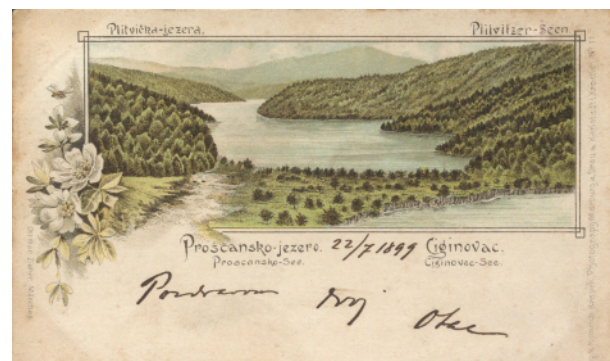 Plitvička-jezera. Plitvitzer-Seen.
Prošćansko-jezero. 22/7 1899 Ciginovac.
Proscansko-See. Ciginovec-See.
Pozdravom tvoj Otac